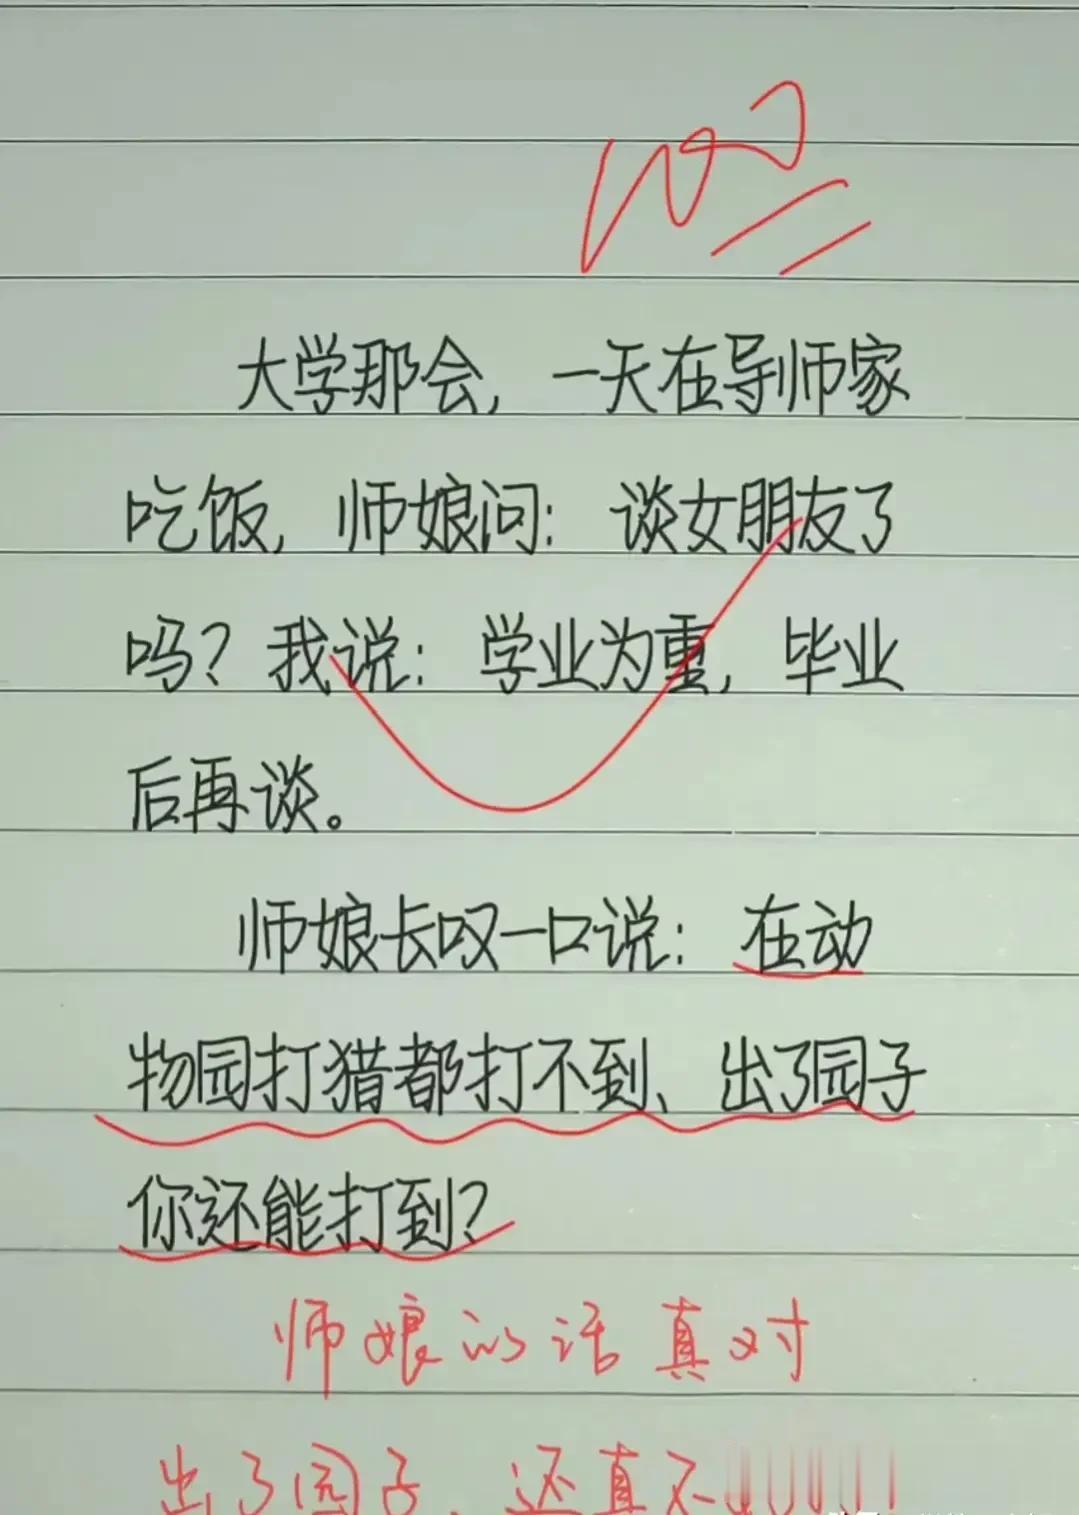 100
大学那会,一天在导师家
吃饭,师娘问:谈女朋友了
吗?我说:学业为重,毕业
后再谈。
师娘长叹一口说:在动
物园打猎都打不到、出了园子
你还能打到?
师娘的话真对
出了园子,还真不